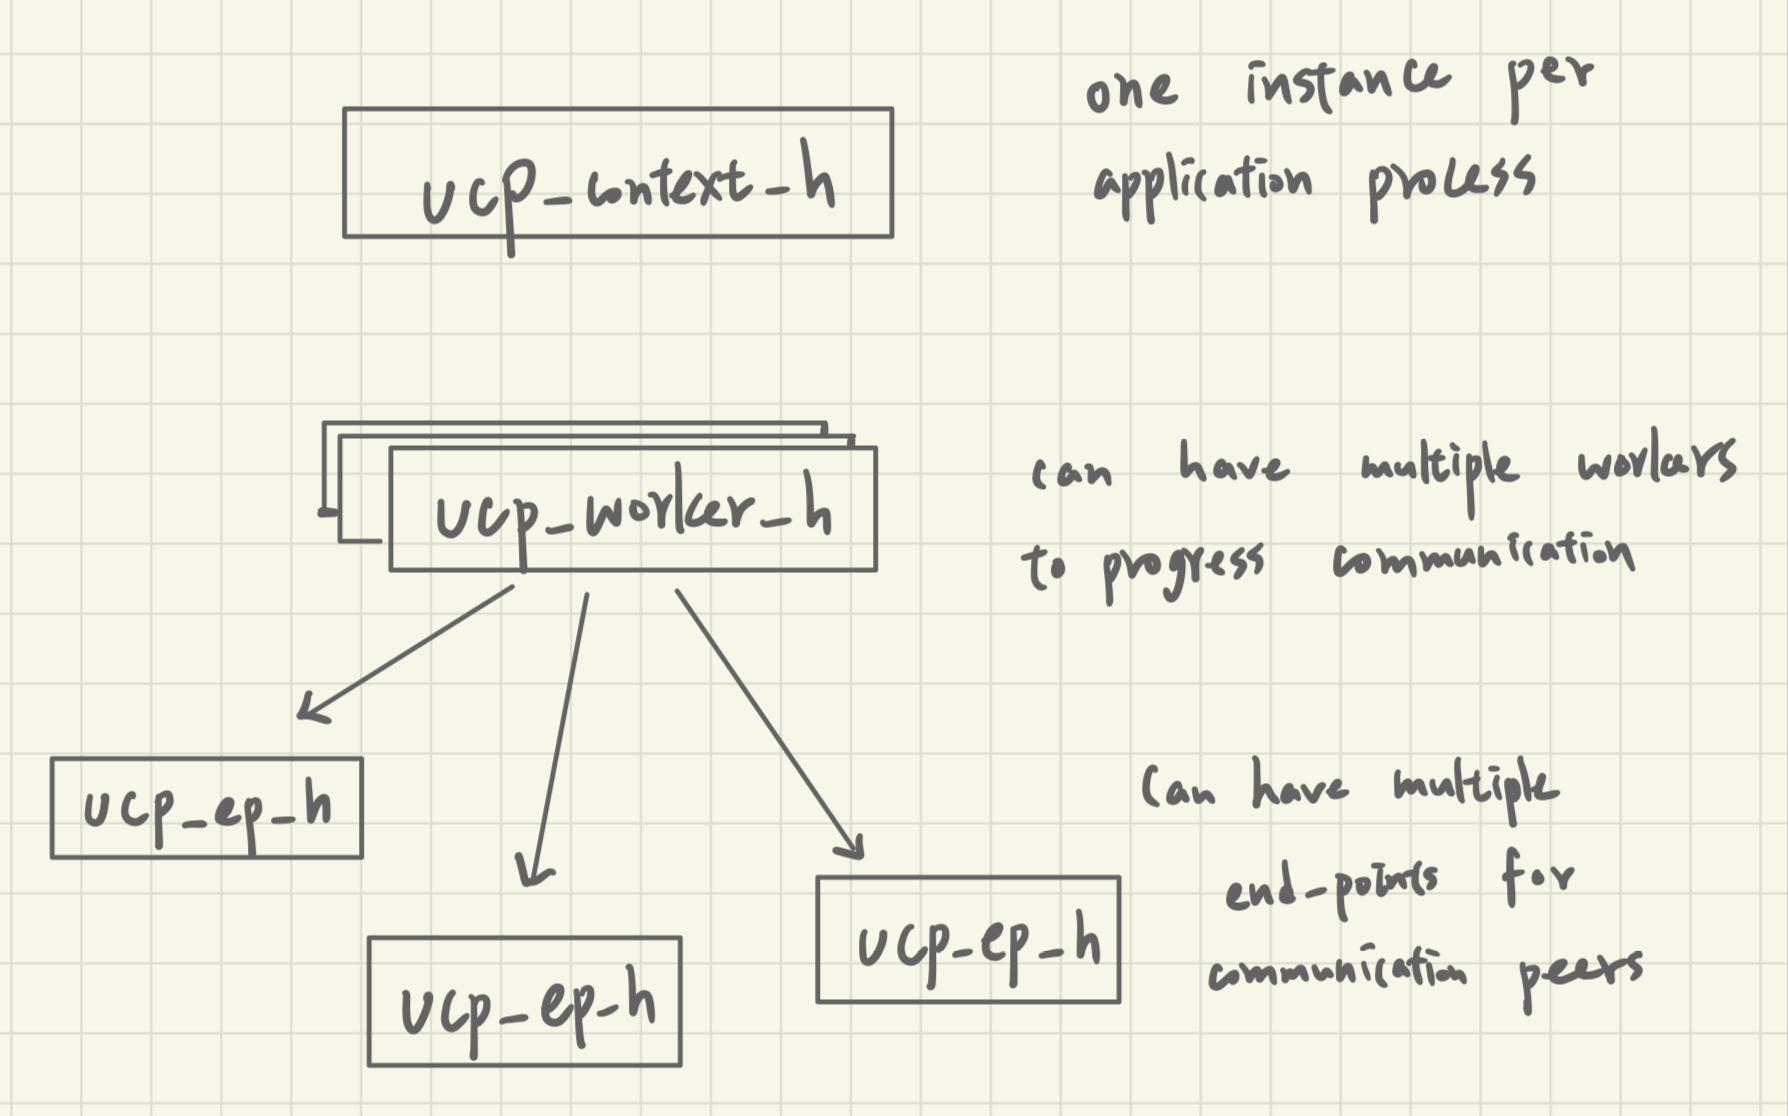 ucp_context_h
one instance per
application process
ucp_worker_h
can have multiple workers
to progress communication
ucp_ep_h
ucp_ep_h
ucp_ep_h
Can have multiple
end-points for
communication peers